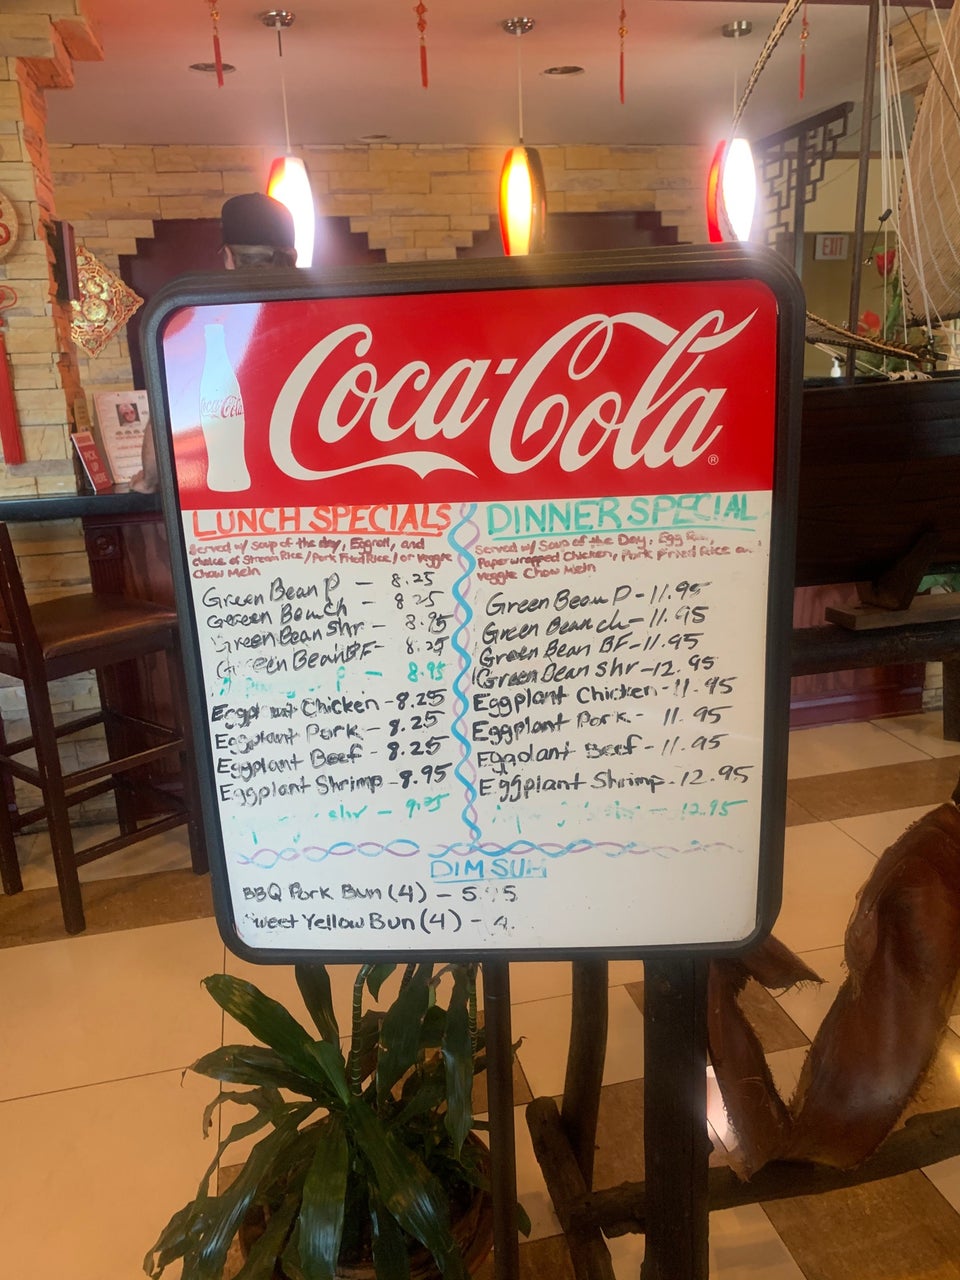 EXIT
Coca-Cola
Coca-Cola®
PICK UP HERE
LUNCH SPECIALS
Served w/ soup of the day, Eggroll, and
choice of Stream Rice / Pork Fried Rice / or Veggie
Chow Mein
Green Bean P - 8.25
Green Bean Ch - 8.25
Green Bean Shr - 8.95
Green Bean BF - 8.25
8.95
Eggplant Chicken - 8.25
Eggplant Pork - 8.25
Eggplant Beef - 8.25
Eggplant Shrimp - 8.95
shr - 9.25
DINNER SPECIAL
Served w/ Soup of the Day, Egg
Paper wrapped Chicken, Pork Fried Rice
Veggie Chow Mein
Green Bean P - 11.95
Green Bean ch - 11.95
Green Bean BF - 11.95
Green Bean Shr - 12.95
Eggplant Chicken - 11.95
Eggplant Pork - 11.95
Eggplant Beef - 11.95
Eggplant Shrimp - 12.95
12.95
DIM SUM
BBQ Pork Bun (4) - 5
Sweet Yellow Bun (4) - 4.